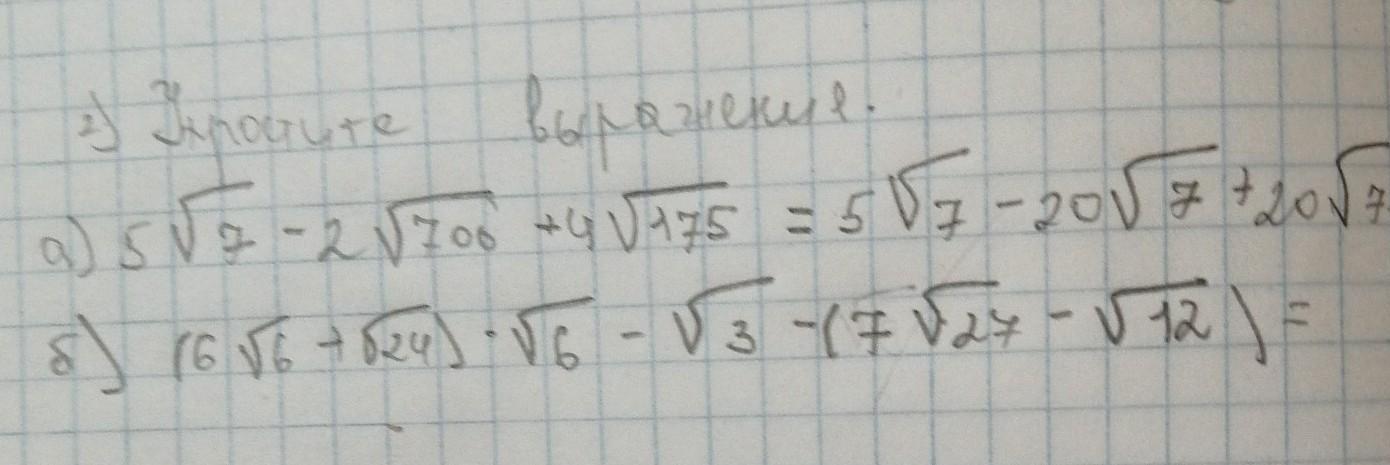 2) Упростите выражения.
а) 5√7 - 2√700 + 4√175 = 5√7 - 20√7 + 20√7
б) (6√6 + √24) · √6 - √3 - (7√27 - √12) =